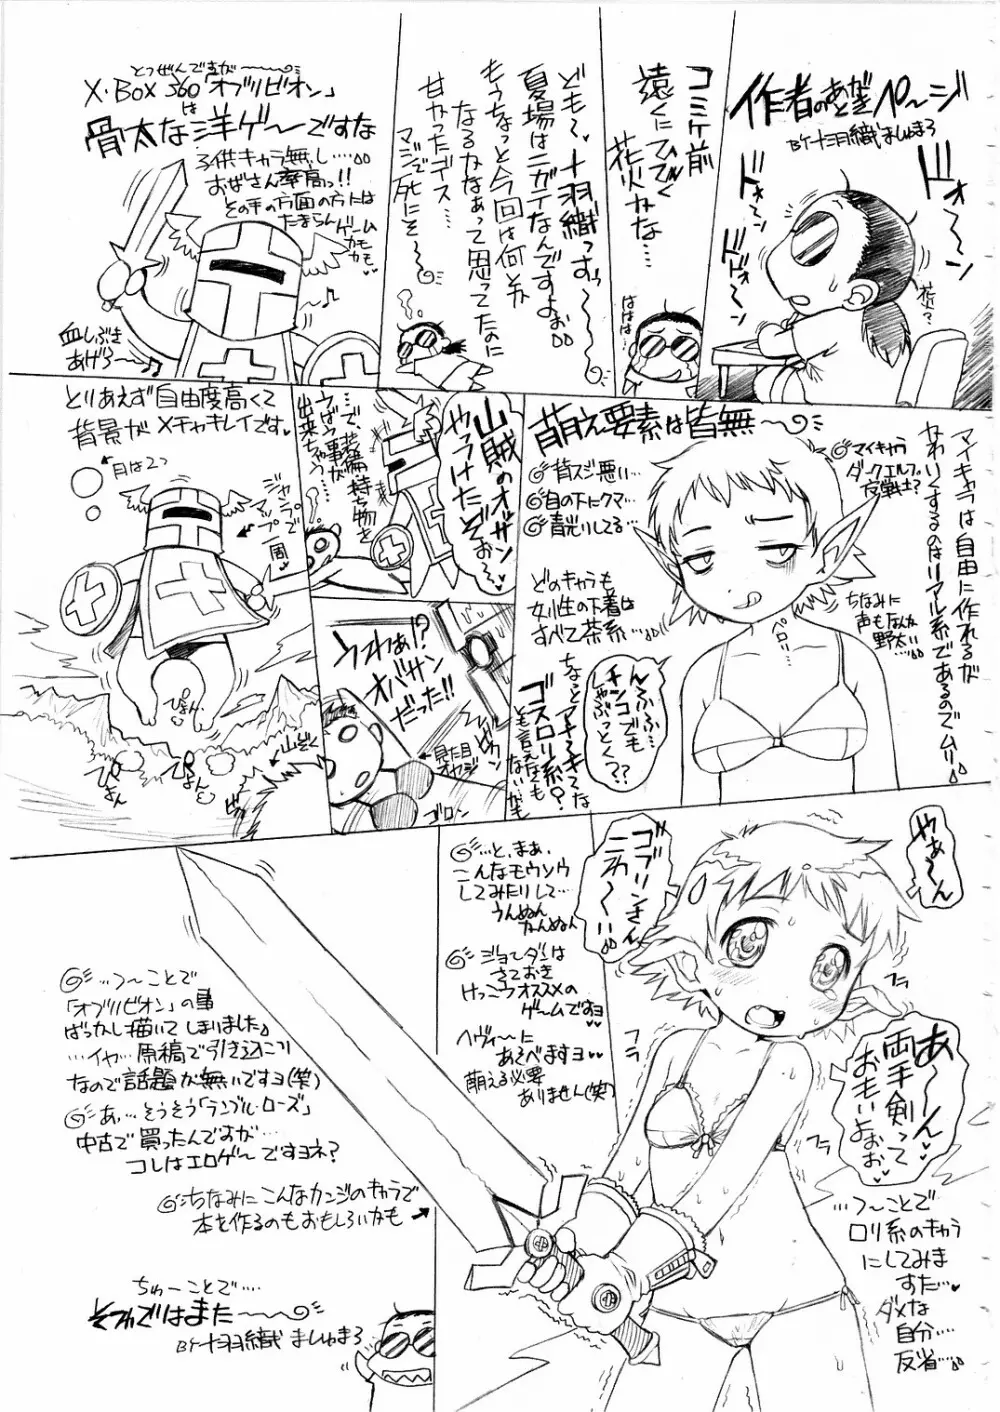 作者のあとがきペ〜ジ
BY十羽織ましゅまろ
ドォ〜ン
ドォ〜ン
ドドォ〜ン
コミケ前
遠くにひびく
花火かな…
ははは…
ども〜、十羽織っすぅ〜
夏場はニガテなんですよぉ
もうちょっと今回は何とか
なるかなぁって思ってたのに
甘かったデス…
マジで死にそ〜
とつぜんですが
X・BOX360「オブリビオン」
は
骨太な洋ゲ〜ですな
子供キャラ無し…
おばさん率高っ!!
その手の方面の方には
たまらん
ゲーム
かも
血しぶき
あげろ〜♪
マイキャラは自由に作れるが
かわいくするのはリアル系であるのでムリ
萌え要素は皆無〜
マイキャラ
ダークエルフ
女戦士?
首スジ悪い…
目の下にクマ…
青光りしてる…
どのキャラも
女性の下着は
すべて茶系…
ちなみに
声もなんか
野太い…
ペロリ…
んふふ…
チンコでも
しゃぶっとく??
ちょっとアトミキてな
ゴスロリ系?
とも言えなくも
ないかも
山賊のオッサン
やっつけたぞぉ〜
…で、装備持ち物を
うばう事が
出来ちゃう…
とりあえず自由度高くて
背景がメチャキレイです
月は2つ
ジャンプで
マップ一周
ぴょん
ぴょん
ぴょん
山ぞく
うわぁ!?
オバサン
だった!!
見た目
オヤジ
ゴロン
やぁ〜ん
ゴブリンさん
こわ〜い!!
あ〜んん
両手剣って
おもいよぉぉ
…と、まぁ、
こんなモウソウ
してみたりして…
うんぬん
かんぬん
ジョーダンは
さておき
けっこうオススメの
ゲームですヨ
ヘヴィ〜に
あそべますヨ
萌える必要
ありません(笑)
…つ〜ことで
「オブリビオン」の事
ばっかし描いてしまいました
…イヤ…原稿で引き込こり
なので話題が無いですヨ(笑)
あ,…そうそう「ランブル・ローズ」
中古で買ったんですが…
コレはエロゲーですヨネ?
ちなみにこんなカンジのキャラで
本を作るのもおもしろいかも
…つ〜ことで
ロリ系のキャラ
にしてみま
すた…
ダメな
自分…
反省…
ちゅーことで…
それではまた〜
BY十羽織ましゅまろ